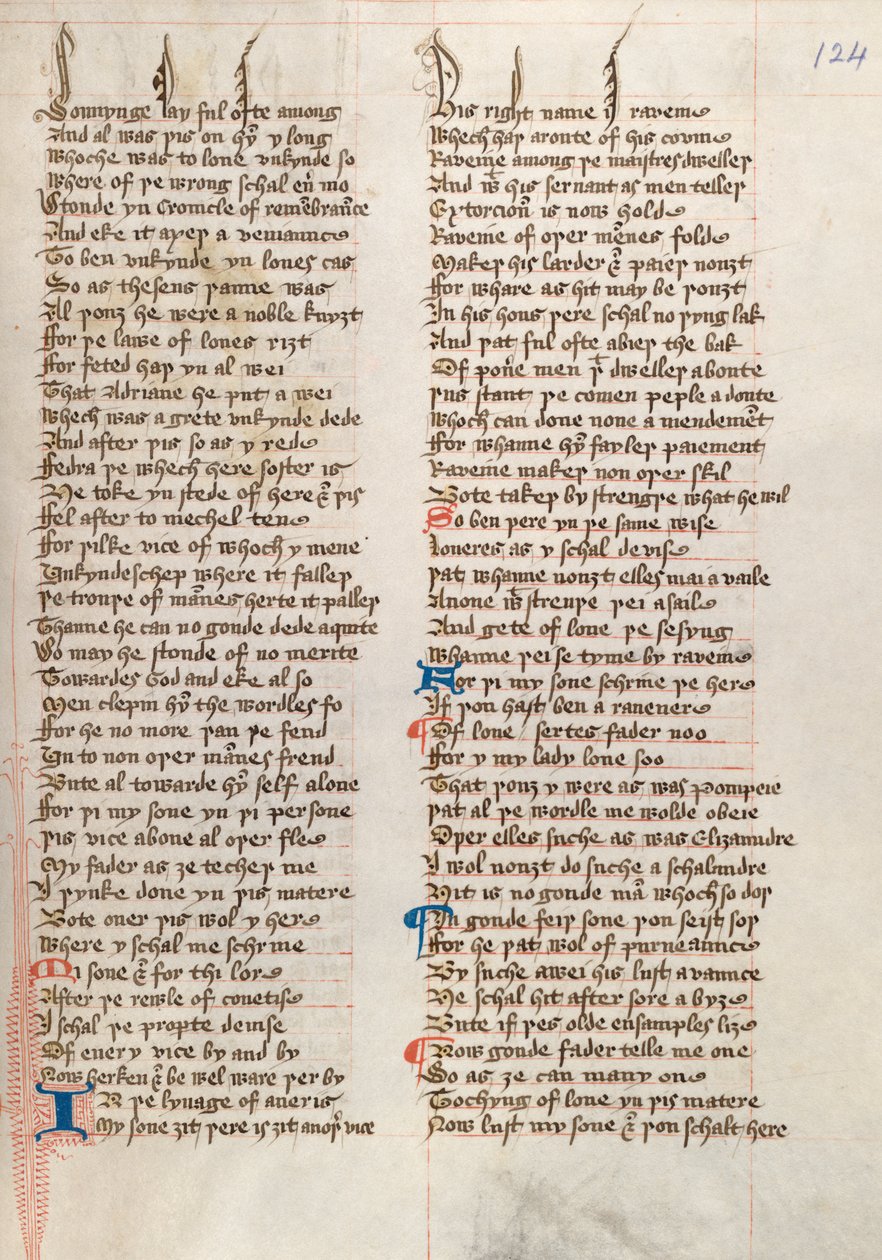 124
Somnynge lay ful ofte among
And al was þis on hȳ y long
Whoche was to loue vnkynde so
Where of þe wrong schal eūi mo
Stonde yn Cronicle of remēbrāce
And eke it axeþ a veniaunce
To ben vnkynde yn loues cas
So as theseus þanne was
Al þouȝ he were a noble knyȝt
Ffor þe lawe of loues riȝt
Ffor feted haþ yn al wei
That Adriane he put a wei
Whech was a grete vnkynde dede
And after þis so as y rede
Fedra þe whech here soster is
He toke yn stede of here & þis
Ffel after to mechel tene
Ffor þilke vice of whoch y mene
Vnkyndeschep where it falleþ
Þe trouþe of mānes herte it palleþ
Thanne he can no goude dede aquite
So may he stonde of no merite
Towardes God and eke al so
Men clepin hȳ the wordles fo
Ffor he no more þan þe fend
Vn to non oþer mānes frend
Bute al towarde hȳ self alone
Ffor þi my sone yn þi persone
Þis vice aboue al oþer fle
My fader as ȝe techeþ me
I þynke done yn þis matere
Bote ouer þis wol y here
Where y schal me schriue
Mi sone & for thi lore
After þe rewle of couetise
I schal þe proprte deuise
Of euery vice by and by
Now herken & be wel ware þer by
In þe lynage of aueris
My sone ȝit þere is ȝit anoþ vice
His right name is raveine
Whech haþ a route of his covine
Raveine among þe maistres dwelleþ
And wt his seruant as men telleþ
Extorcion is now holde
Raveine of oþer mēnes folde
Makeþ his larder & paieþ nouȝt
Ffor whare as hit may be þouȝt
In his hous þere schal no þyng lak
And þat ful ofte abieþ the bak
Of pouē men þt dwelleþ aboute
Þus stant þe comen peple a doute
Whoch can done none a mendemēt
Ffor whanne hȳ fayleþ paiement
Raveine makeþ non oþer skil
Bote takeþ by strengþe what he wil
So ben þere yn þe same wise
Loueres as y schal deuise
Þat whanne nouȝt elles mai a vaile
Anone wt strenþe þei asaile
And gete of loue þe sesyng
Whanne þei se tyme by raveine
Ffor þi my sone schriue þe here
If þou hast ben a rauenere
Of loue sertes fader noo
Ffor y my lady loue soo
That þouȝ y were as was Pompeie
Þat al þe wordle me wolde obeie
Oþer elles suche as was Elizaundre
I wol nouȝt do suche a schlaundre
Hit is no goude mā whoch so doþ
In goude feiþ sone þou seist soþ
Ffor he þat wol of purueaunce
By suche a wei his lust a vaunce
He schal hit after sore a byȝe
Bute if þes olde ensamples liȝe
Now goude fader telle me one
So as ȝe can many one
Tochyng of loue yn þis matere
Now lust my sone & þou schalt here